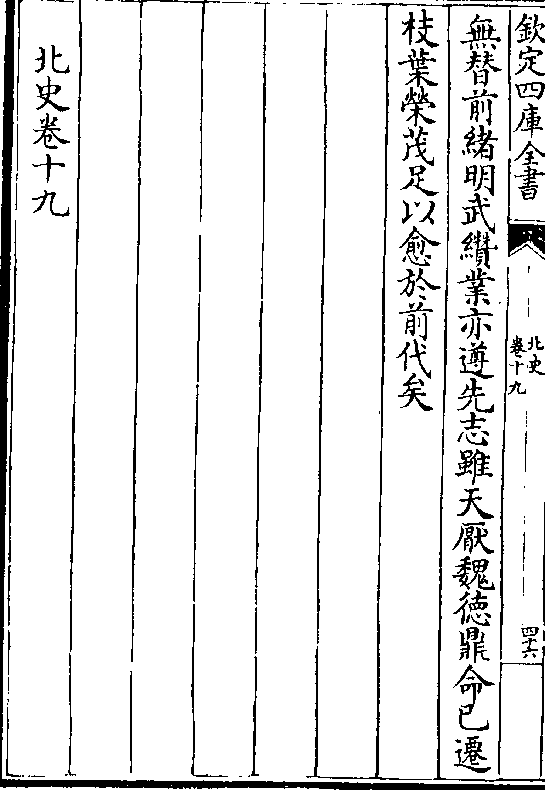 欽定四庫全書
北史
卷十九
四十六
無替前緒明武纘業亦遵先志雖天厭魏德鼎命已遷
枝葉榮茂足以愈於前代矣
北史卷十九